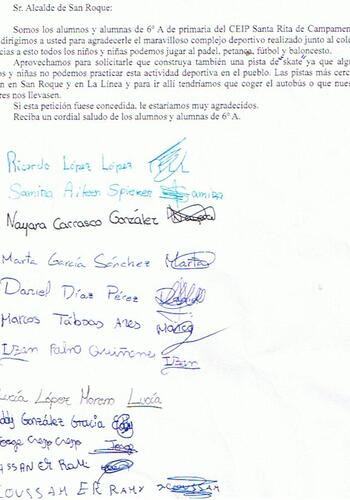 Sr. Alcalde de San Roque:
Somos los alumnos y alumnas de 6º A de primaria del CEIP Santa Rita de Campamen
dirigimos a usted para agradecerle el maravilloso complejo deportivo realizado junto al cole
cias a esto todos los niños y niñas podemos jugar al padel, petanca, fútbol y baloncesto.
Aprovechamos para solicitarle que construya también una pista de skate ya que algu
os y niñas no podemos practicar esta actividad deportiva en el pueblo. Las pistas más cerc
en en San Roque y en La Línea y para ir allí tendríamos que coger el autobús o que nues
res nos llevasen.
Si esta petición fuese concedida, le estaríamos muy agradecidos.
Reciba un cordial saludo de los alumnos y alumnas de 6º A.
Ricardo López López
Samira Spicker Samira
Nayara Carrasco González
Marta García Sánchez Marta
Daniel Díaz Pérez Daniel
Marcos Táboas Ares Marcos
Izan Quiñones Izan
ucía López Moreno Lucía
ddy González Gracia Eddy
orge Crespo Crespo Jorge
ASSAN ER RAMI
OUSSAM ER RAMY